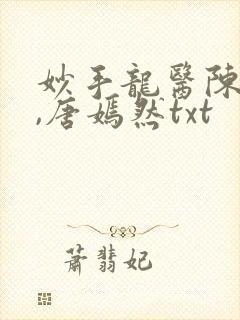 妙手龍醫陳
,唐嫣然txt
蕭翡妃